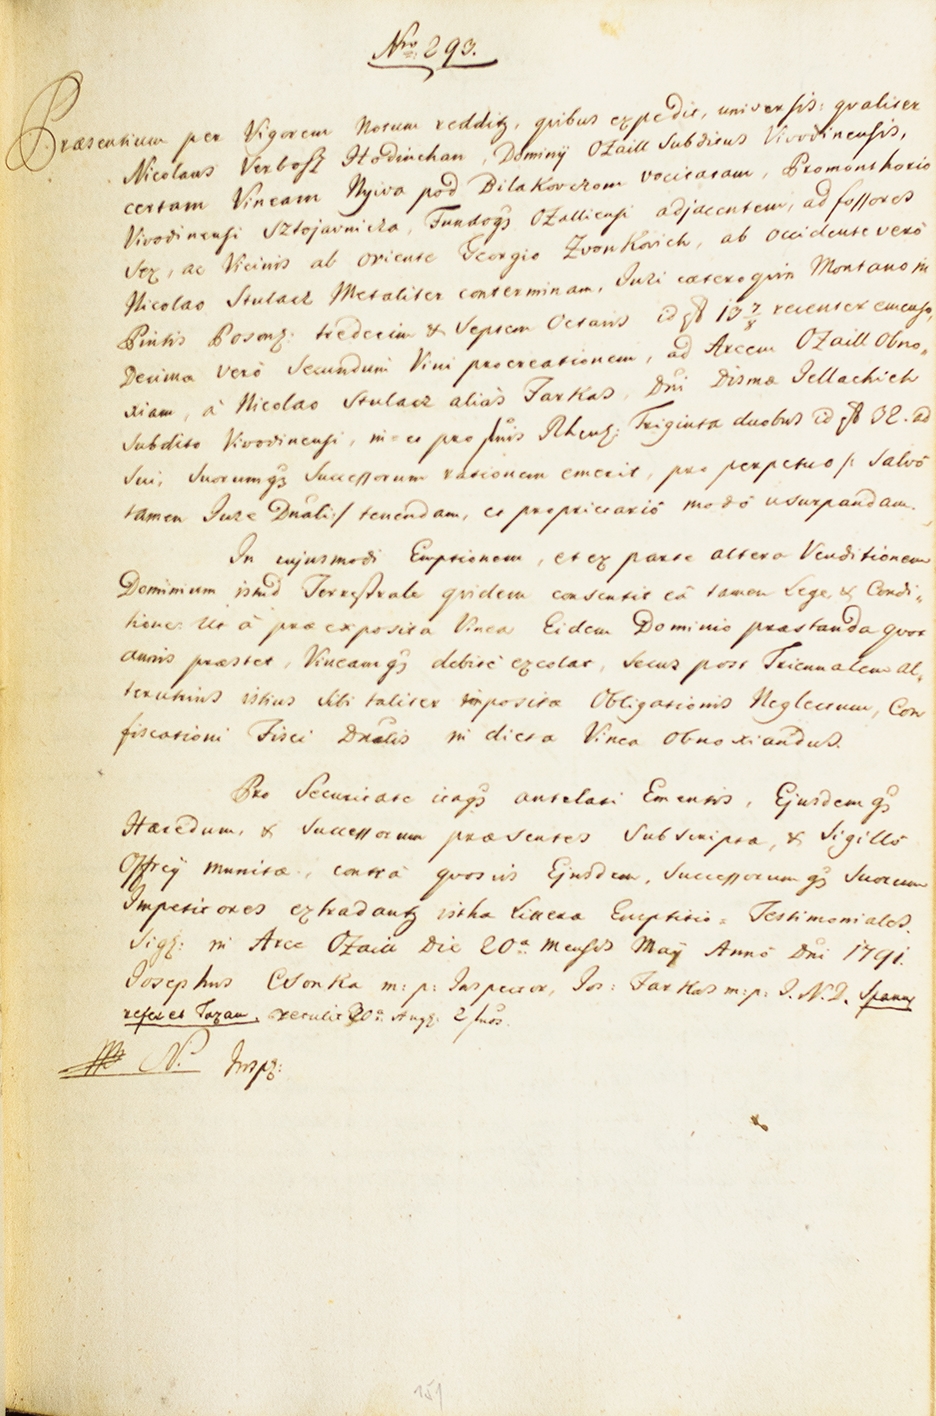 Nro 293.
Præsentium per Vigorem Notum redditz, quibus expedit, universis: qvaliter
Nicolaus Verbosz Hodinchan, Dominÿ Ozaill Subditus Vivodinensis,
certam Vineam Nyiva pod Dilakovczom vocitatam, Promonthorio
Vivodinensi Sztojavnicza, Fundoq3 Ozalliensi adjacentem, ad fossores
Sex, ac Vicinis ab oriente Georgio Zvonkovich, ab occidente verò
Nicolao Stulacz Metaliter conterminam, Juri cæteroqvin Montano in
Pintis Posonz: tredecim & Septem Octavis id est 13 7/8 recenter emenso,
Decimæ verò Secundum Vini procreationem, ad Arcem Ozaill Obno=
xiam, à Nicolao Stulacz aliàs Farkas, Dni Dismæ Jellachich
Subdito Vivodinensi, in et pro flnis Rhenz: Triginta duobus id est 32. ad
Sui, Suorumq3 Successorum rationem emerit, pro perpetuo /: Salvô
tamen Jure Dnali :/ tenendam, et proprietariô modô usurpandam.
In cujusmodi Emptionem, et ex parte altera Venditionem
Dominium istud Terrestrale qvidem consentit eâ tamen Lege & Condi=
tione: Ut à præexposita Vinea Eidem Dominio præstanda qvot
annis præstet, Vineamq3 debitè excolat, secus post Triennalem al=
terutrius istius sibi taliter impositæ Obligationis Neglectum, Con
fiscationi Fisci Dnalis in dicta Vinea Obnoxiandus.
Pro Securitate itaq3 antelati Ementis, Ejusdemq3
Hæredum, & Successorum præsentes Subscripta, & Sigillô
Officÿ munitæ, contra qvosvis Ejusdem, Successorumq3 Suorum
Impetitores extradantz istha Littera Emptitio = Testimoniales.
Sigz: in Arce Ozaill Die 20a Mensis Maÿ Annô Dni 1791.
Josephus Csonka m: p: Inspector, Jos: Farkas m: p: J. N. J.
Taxam, retulit 20a Augz: 2 flnos.
N. Inspz:
151